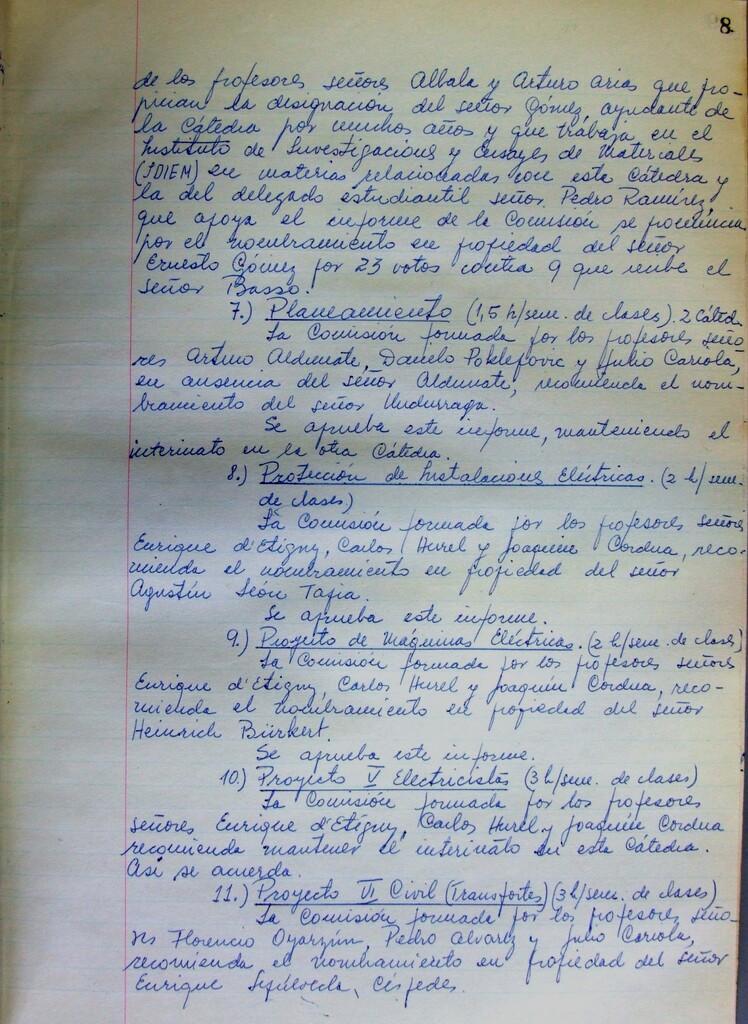 8.
de los profesores señores Albala y Arturo Arias que pro-
pician la designación del señor Gómez, ayudante de
la Cátedra por muchos años y que trabaja en el
Instituto de Investigaciones y Ensayes de Materiales
(IDIEM) en materias relacionadas con esta Cátedra y
la del delegado estudiantil señor Pedro Ramírez,
que apoya el informe de la Comisión se pronuncia
por el nombramiento en propiedad del señor
Ernesto Gómez por 23 votos contra 9 que recibe el
señor Basso.
7.) Planeamiento (1,5 h/sem. de clases). 2 Cáted.
La Comisión formada por los profesores seño-
res Arturo Aldunate, Danilo Poklepovic y Julio Cariola,
en ausencia del señor Aldunate, recomienda el nom-
bramiento del señor Undurraga.
Se aprueba este informe, manteniendo el
interinato en la otra Cátedra.
8.) Protección de Instalaciones Eléctricas. (2 h/sem.
de clases)
La Comisión formada por los profesores señores
Enrique d'Etigny, Carlos Hurel y Joaquín Cordua, reco-
mienda el nombramiento en propiedad del señor
Agustín León Tapia.
Se aprueba este informe.
9.) Proyecto de Máquinas Eléctricas. (2 h/sem. de clases)
La Comisión formada por los profesores señores
Enrique d'Etigny, Carlos Hurel y Joaquín Cordua, reco-
mienda el nombramiento en propiedad del señor
Heinrich Bürkert.
Se aprueba este informe.
10.) Proyecto V Electricistas (3 h/sem. de clases)
La Comisión formada por los profesores
señores Enrique d'Etigny, Carlos Hurel y Joaquín Cordua
recomienda mantener el interinato en esta Cátedra.
Así se acuerda.
11.) Proyecto VI Civil (Transportes) (3 h/sem. de clases)
La Comisión formada por los profesores seño-
res Florencio Oyarzún, Pedro Alvarez y Julio Cariola,
recomienda el nombramiento en propiedad del señor
Enrique Sepúlveda Céspedes.